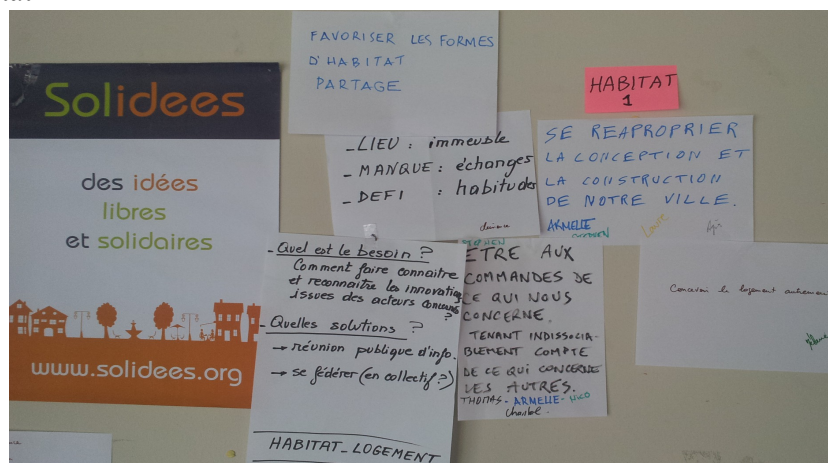 Solidees
des idées
libres
et solidaires
www.solidees.org
FAVORISER LES FORMES
D'HABITAT
PARTAGE
HABITAT
1
_ LIEU : immeuble
_ MANQUE : échanges
_ DEFI : habitudes
SE REAPROPRIER
LA CONCEPTION ET
LA CONSTRUCTION
DE NOTRE VILLE.
ARMELLE
- Quel est le besoin ?
Comment faire connaitre
et reconnaitre les innovations
issues des acteurs concernés
?
- Quelles solutions ?
→ réunion publique d'info.
→ se fédérer (en collectif ?)
HABITAT_LOGEMENT
ETRE AUX
COMMANDES DE
CE QUI NOUS
CONCERNE.
TENANT INDISSOCIA-
BLEMENT COMPTE
DE CE QUI CONCERNE
LES AUTRES.
THOMAS - ARMELLE - NICO
Chantal.
Concevoir le logement autrement